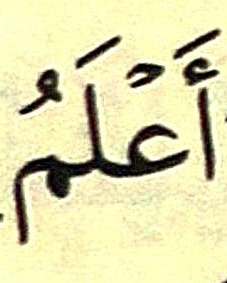 أَعْلَمُ